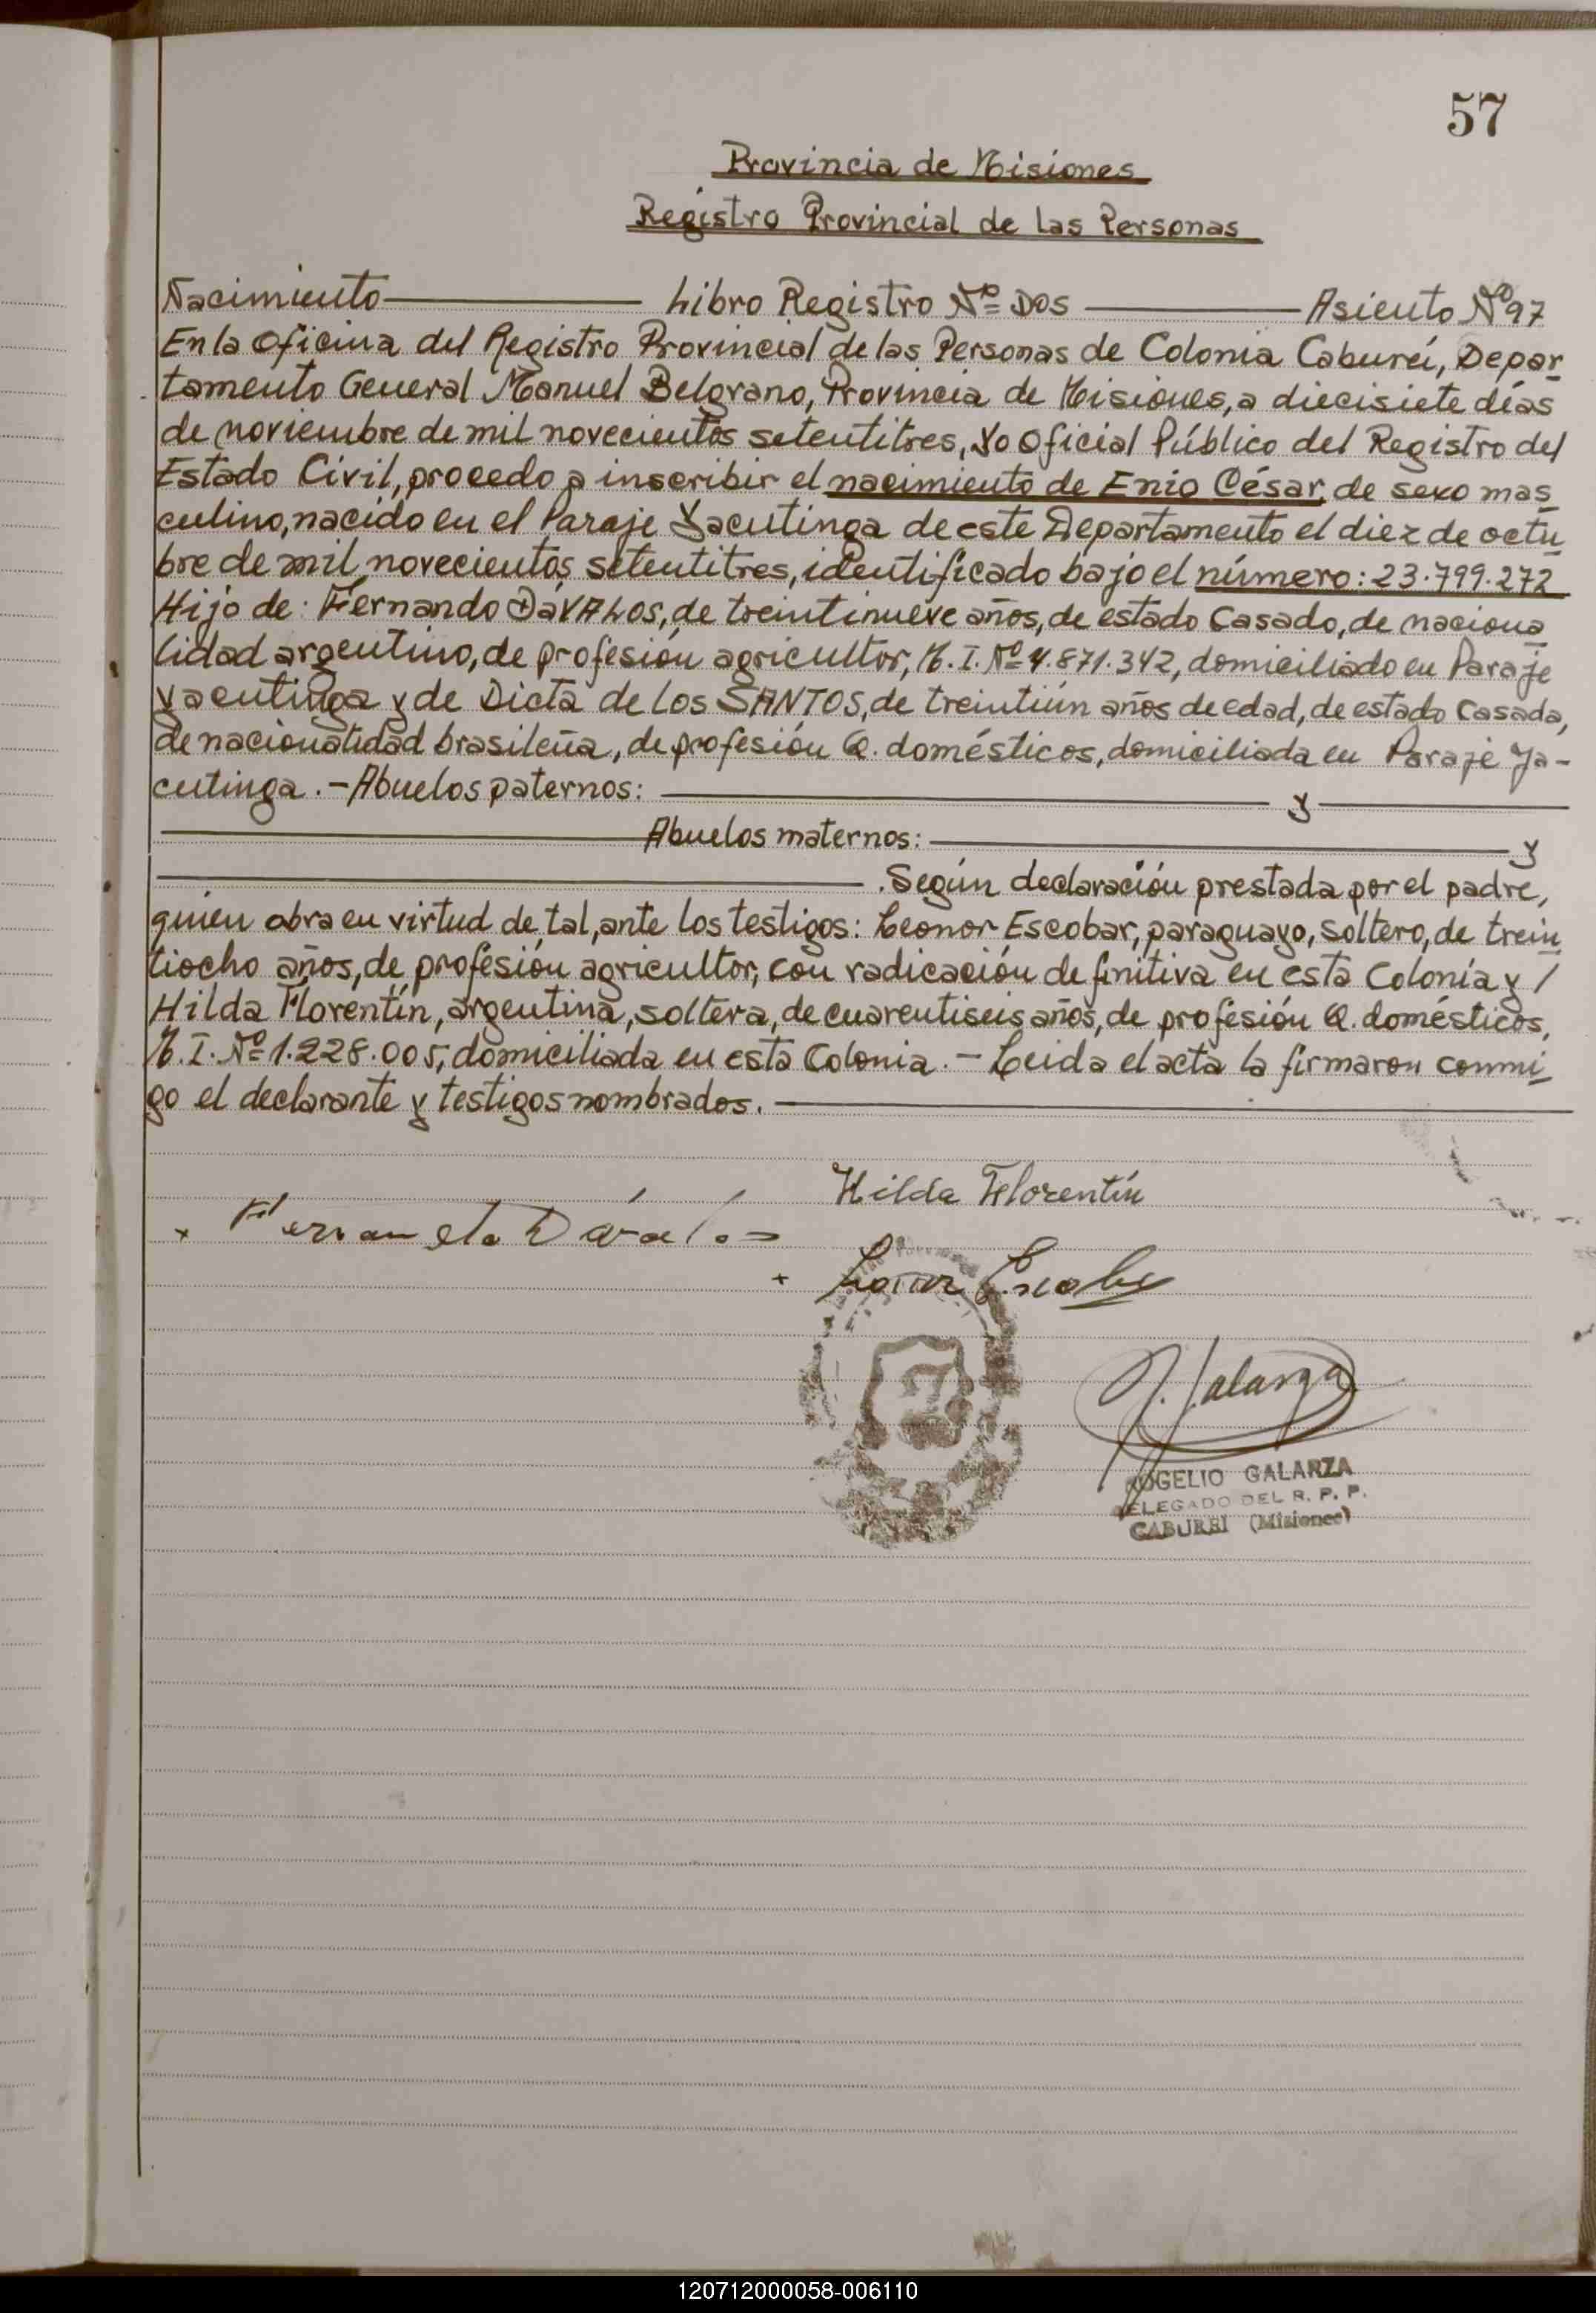 57
Provincia de Misiones
Registro Provincial de las Personas
Nacimiento Libro Registro Nº Dos Asiento Nº 97
En la Oficina del Registro Provincial de las Personas de Colonia Cabureí, Depar
tamento General Manuel Belgrano, Provincia de Misiones, a diecisiete días
de noviembre de mil novecientos setentitres, Yo Oficial Público del Registro del
Estado Civil, procedo a inscribir el nacimiento de Enio César, de sexo mas
culino, nacido en el Paraje Yacutinga de este Departamento el diez de octu
bre de mil novecientos setentitres, identificado bajo el número: 23.799.272
Hijo de: Fernando DávALOS, de treintinueve años, de estado Casado, de naciona
lidad argentino, de profesión agricultor, M.I. Nº 4.871.342, domiciliado en Paraje
Yacutinga y de Dicta de los SANTOS, de treintiún años de edad, de estado Casada,
de nacionalidad brasileña, de profesión Q. domésticos, domiciliada en Paraje Ya-
cutinga.- Abuelos paternos: y
Abuelos maternos: y
. Según declaración prestada por el padre,
quien obra en virtud de tal, ante los testigos: Leonor Escobar, paraguayo, soltero, de trein
tiocho años, de profesión agricultor, con radicación definitiva en esta Colonia y /
Hilda Florentín, argentina, soltera, de cuarentiseis años, de profesión Q. domésticos,
M.I. Nº 1.228.005, domiciliada en esta Colonia.- Leida el acta la firmaron conmi
go el declarante y testigos nombrados.
Hilda Florentín
+ Fernando Dávalos
+ Leonor Escobar
R. Galarza
ROGELIO GALARZA
DELEGADO DEL R. P. P.
CABUREI (Misiones)
120712000058-006110